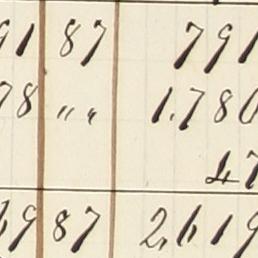 91 87 791
78 " " 1.780
47
69 87 2,619